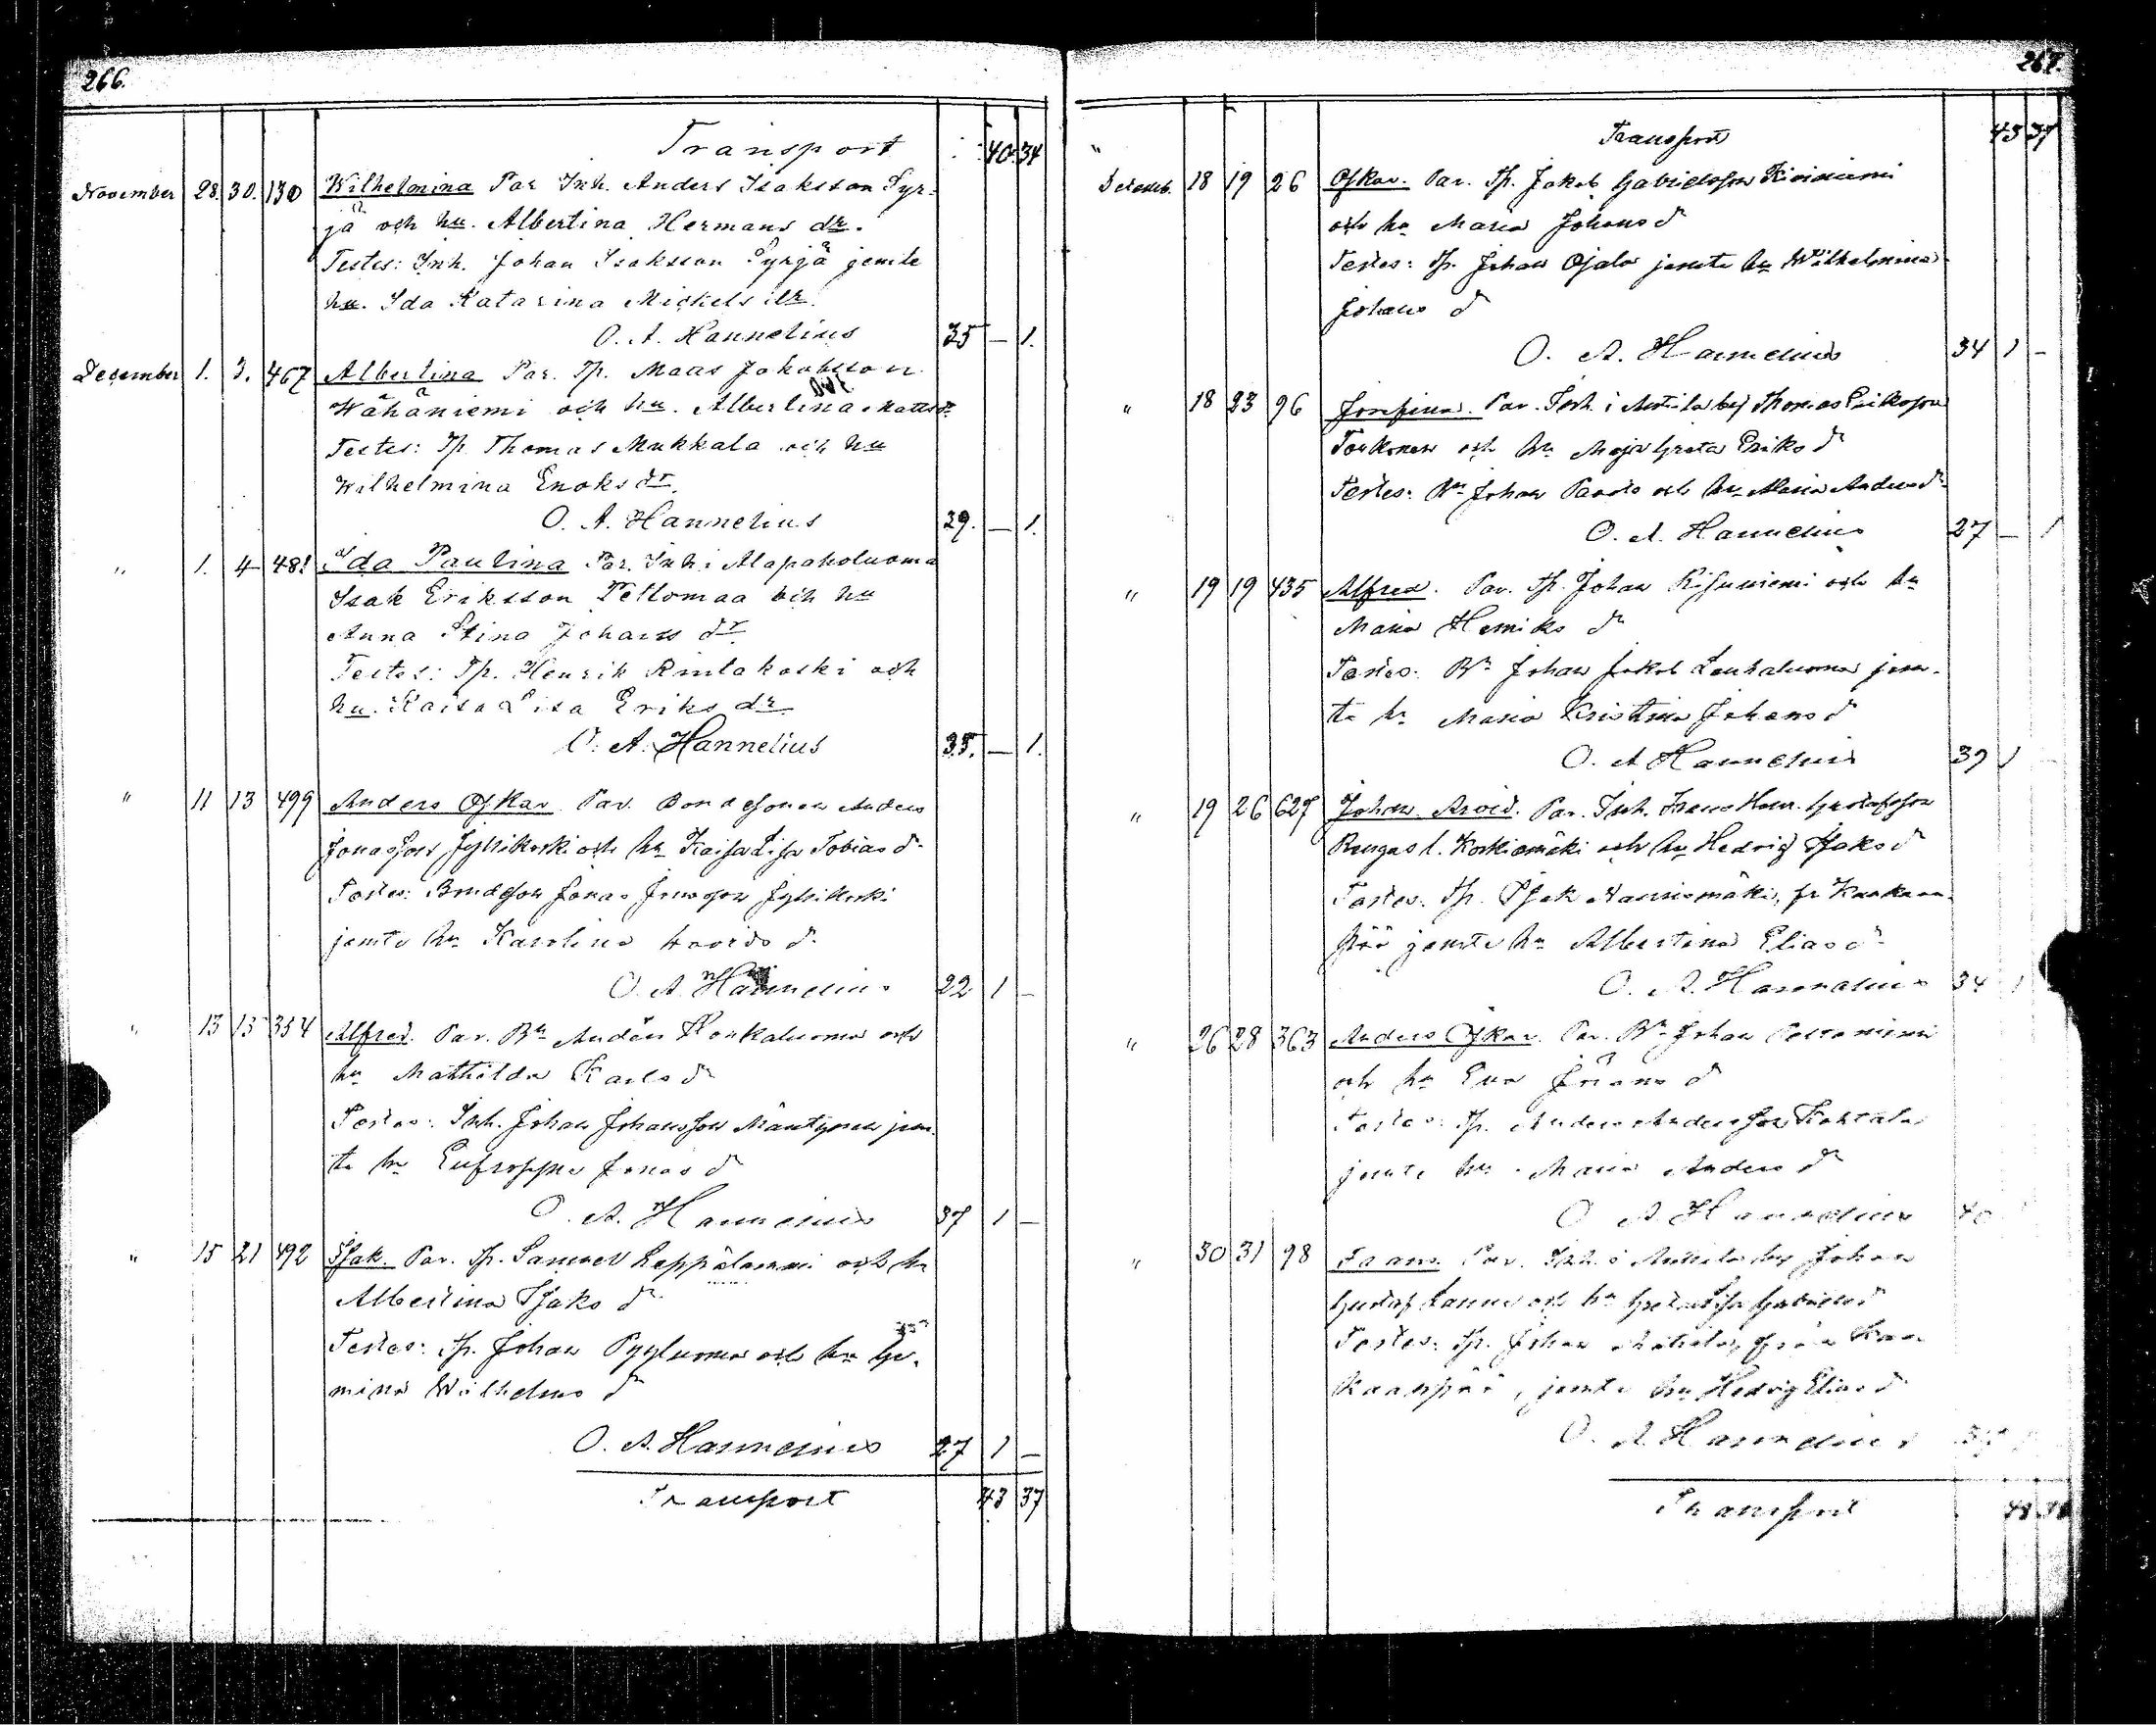 266.
Transport 40. 34
November 28. 30. 130 Wilhelmina Par Inh. Anders Isaksson Syr-
jä och hu. Albertina Hermans dr.
Testes: Inh. Johan Isaksson Syrjä jemte
hu. Ida Katarina Mickels dr.
O. A. Hannelius 35 — 1.
December 1. 3. 467 Albertina Par. Tp. Maas Jakobsson
Wähäniemi och hu. Albertina Matts dr.
Testes: Tp. Thomas Mukkala och hu
Wilhelmina Enoks dr.
O. A. Hannelius 29. — 1.
" 1. 4 481 Ida Paulina Par. Inh. i Alapaholuoma
Isak Eriksson Peltomaa och hu
Anna Stina Johans dr
Testes: Tp. Henrik Rintakoski och
hu. Kaisa Lisa Eriks dr
O. A. Hannelius 35. — 1.
" 11 13 499 Anders Oskar Par. Bondesonen Anders
Jonasson Jyllikoski och hu Kaisa Lisa Tobias dr
Testes: Bondeson Jonas Jonasson Jyllikoski
jemte hu Karolina dr
O. A. Hannelius 22 1 —
" 13 15 354 Alfred. Par. Bn Anders Koukaluoma och
hu Mathilda Karls dr
Testes: Inh. Johan Johansson Mäntynen jem-
te hu Eufrosyne Jonas dr
O. A. Hannelius 37 1 —
" 15 21 492 Isak. Par. Tp. Samuel Leppälammi och hu
Albertina Isaks dr
Testes: Tp. Johan Pyyluoma och hu He-
mina Wilhelms dr
O. A. Hannelius 27 1 —
Transport 43 37
267.
Transport 43 37
" Decemb. 18 19 26 Oskar. Par. Tp. Jakob Gabrielsson Kiviniemi
och hu Maria Johans dr
Testes: Tp. Johan Ojala jemte hu Wilhelmina
Johans dr
O. A. Hannelius 34 1 —
" 18 23 96 Josefina. Par. Inh. i Anttila by Thomas Eriksson
Torkonen och hu Maja Greta Eriks dr
Testes: Bn Johan och hu Maria Anders dr
O. A. Hannelius 27 — 1
" 19 19 435 Alfred. Par. Tp. Johan Risuniemi och hu
Maria Henriks dr
Testes: Bn Johan Jakob Lauhaluoma jem-
te hu Maria Kristina Johans dr
O. A. Hannelius 39 1
" 19 26 627 Johan Arvid. Par. Inh. Frans Henr. Gustafsson
Rengas l. Koskiomäki och hu Hedvig Isaks dr
Testes: Tp. Isak Naurismäki, fr Kankaan-
pää jemte hu Albertina Elias dr
O. A. Hannelius 34 1
" 26 28 363 Anders Oskar. Par. Bn Johan
och hu Eva Jöräns dr
Testes: Tp. Anders Andersson Kohtala
jemte hu Maria Anders dr
O. A. Hannelius 40
" 30 31 98 Frans. Par. Inh. i Anttila by Johan
Gustaf Lanne och hu Greta Lisa Gabriels dr
Testes: Tp. Johan från Kan-
kaanpää, jemte hu Hedvig Elias dr
O. A. Hannelius
Transport 48 38